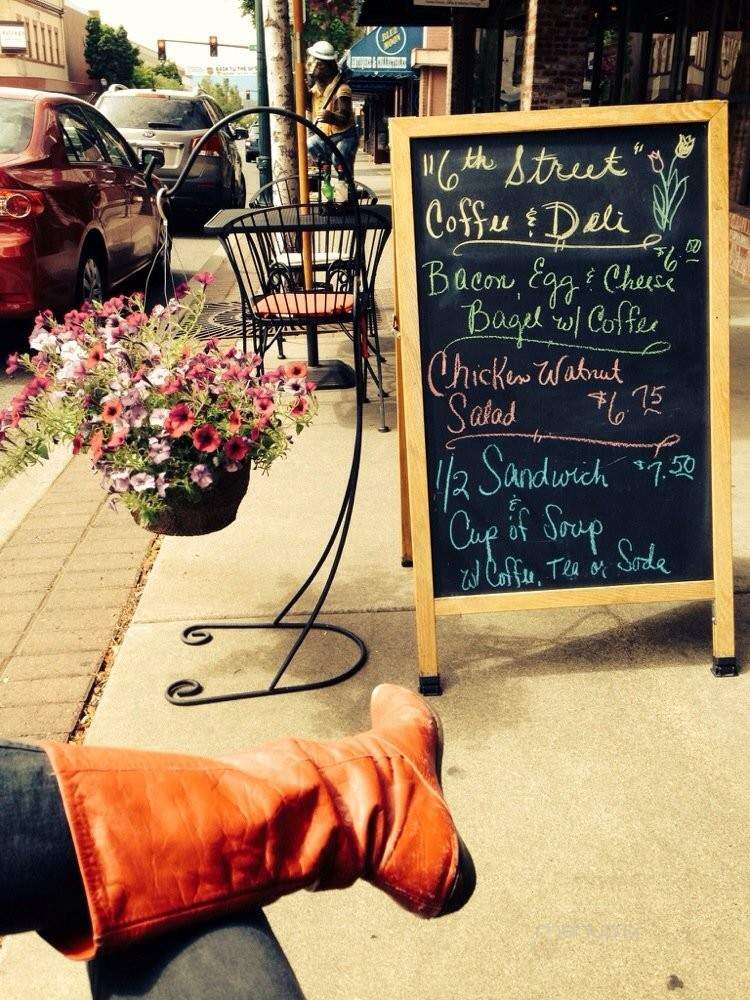 "6th Street"
Coffee & Deli
$6.50
Bacon, Egg & Cheese
Bagel w/ Coffee
Chicken Walnut
Salad $6.75
1/2 Sandwich $7.50
&
Cup of Soup
w/ Coffee, Tea or Soda
BLUE MOON